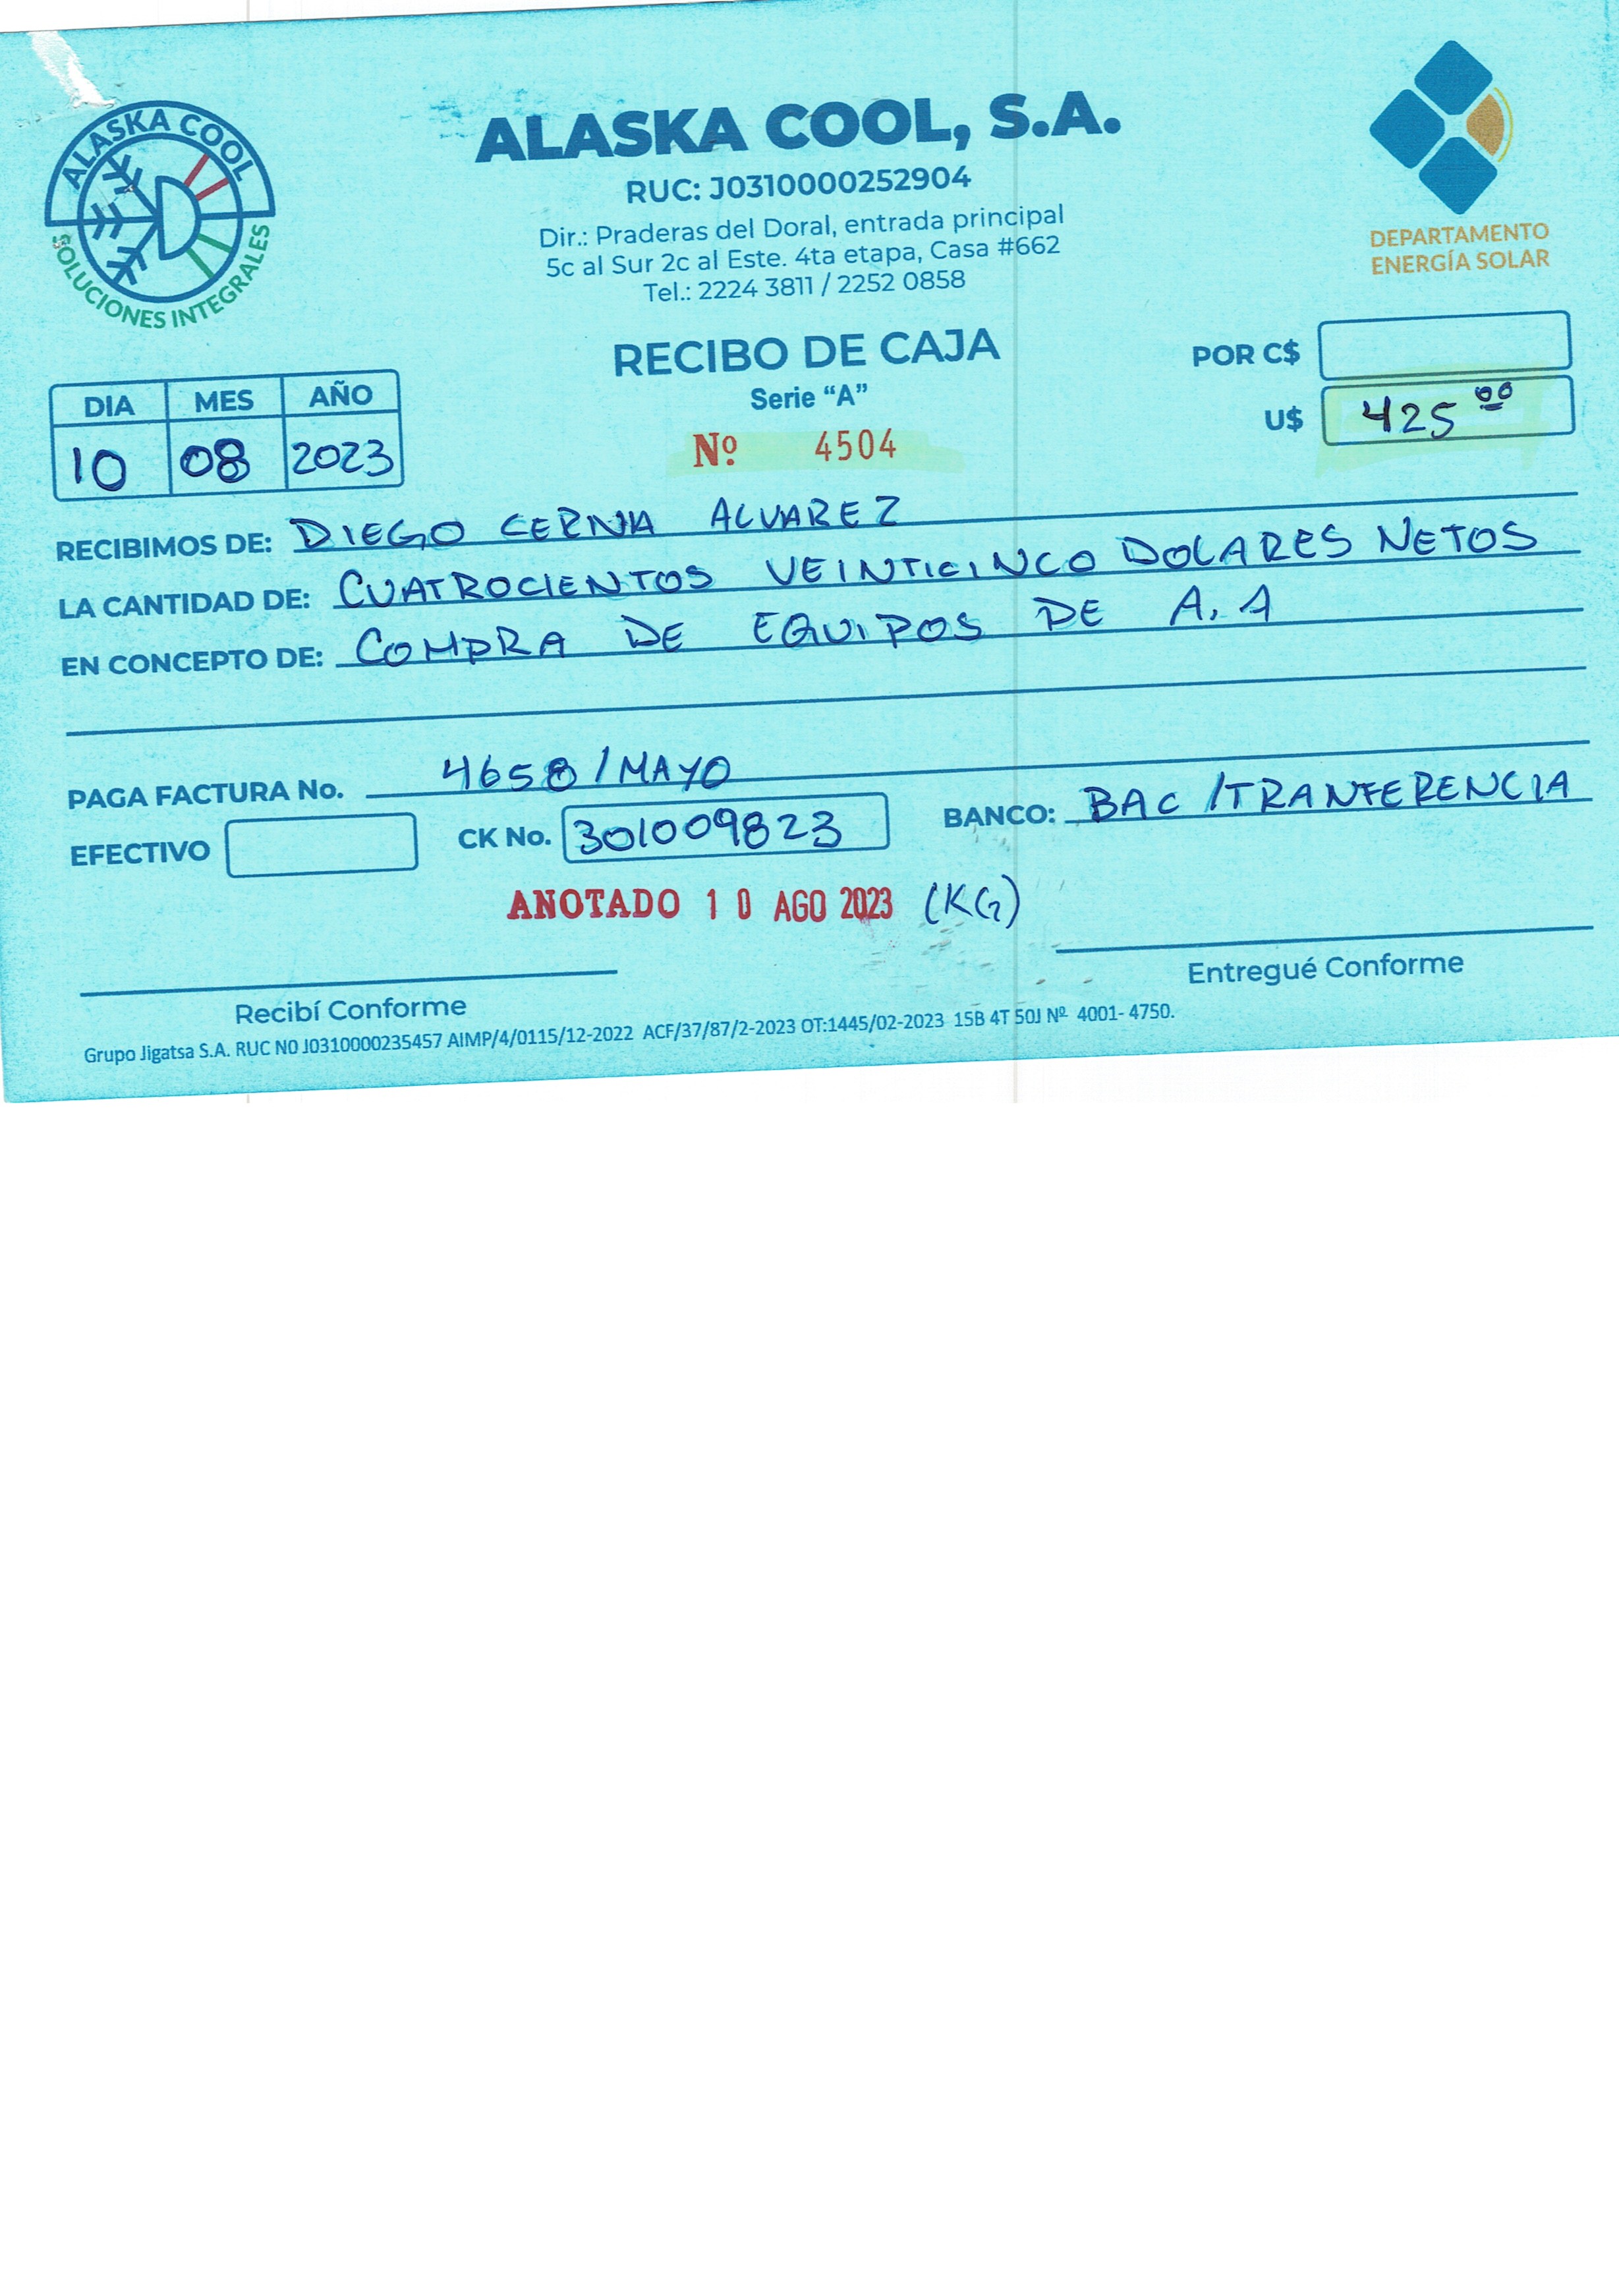 ALASKA COOL
SOLUCIONES INTEGRALES
ALASKA COOL, S.A.
RUC: J0310000252904
Dir.: Praderas del Doral, entrada principal
5c al Sur 2c al Este. 4ta etapa, Casa #662
Tel.: 2224 3811 / 2252 0858
DEPARTAMENTO
ENERGÍA SOLAR
RECIBO DE CAJA
Serie “A”
Nº 4504
POR C$
U$ 425 00
DIA MES AÑO
10 08 2023
RECIBIMOS DE: DIEGO CERNA ALVAREZ
LA CANTIDAD DE: CUATROCIENTOS VEINTICINCO DOLARES NETOS
EN CONCEPTO DE: COMPRA DE EQUIPOS DE A.A
PAGA FACTURA No. 4658 / MAYO
EFECTIVO CK No. 301009823 BANCO: BAC / TRANFERENCIA
ANOTADO 10 AGO 2023 (KG)
Recibí Conforme Entregué Conforme
Grupo Jigatsa S.A. RUC N0 J0310000235457 AIMP/4/0115/12-2022 ACF/37/87/2-2023 OT:1445/02-2023 15B 4T 50J Nº 4001- 4750.